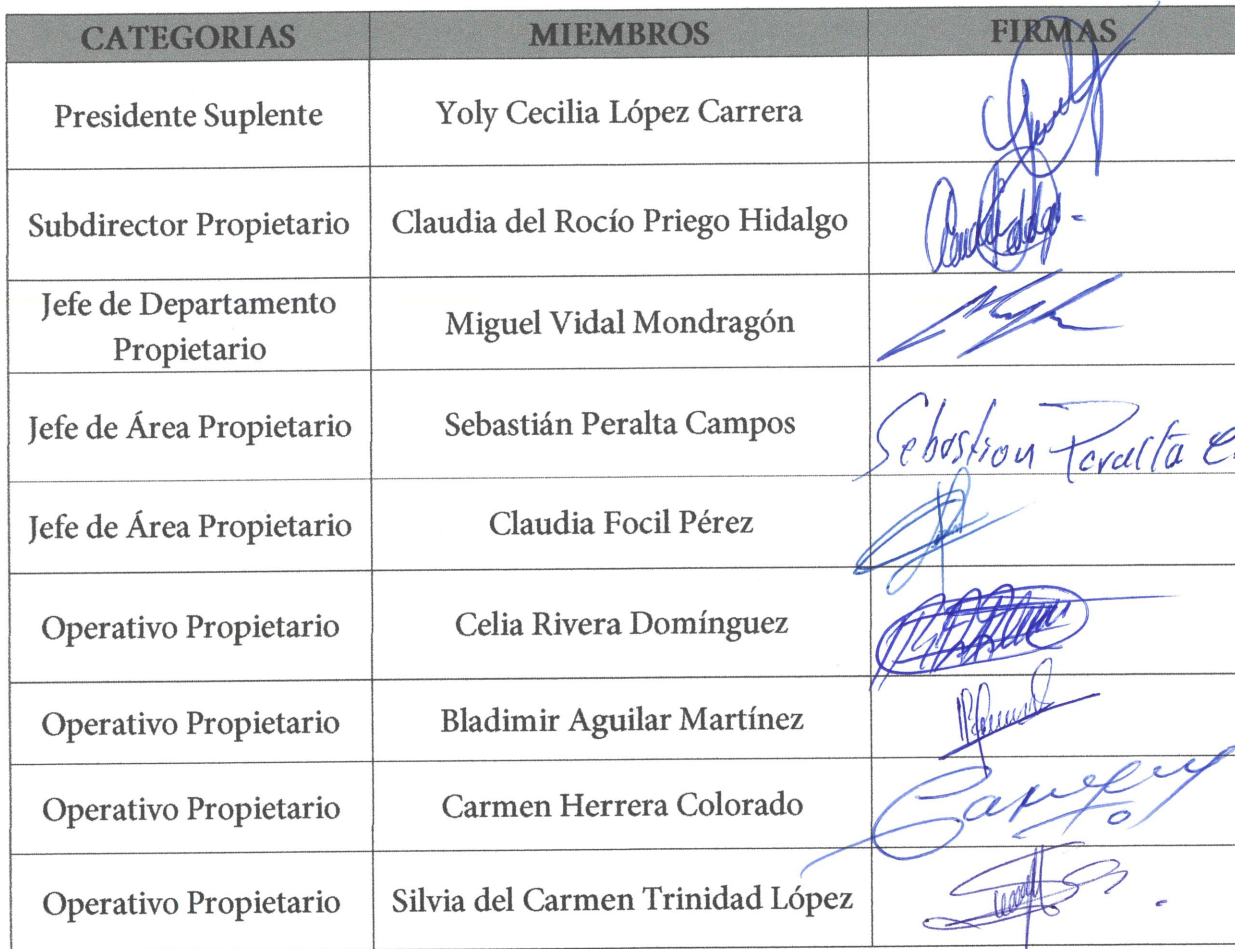 CATEGORIAS MIEMBROS FIRMAS
Presidente Suplente Yoly Cecilia López Carrera
Subdirector Propietario Claudia del Rocío Priego Hidalgo
Jefe de Departamento
Propietario Miguel Vidal Mondragón
Jefe de Área Propietario Sebastián Peralta Campos Sebastian Peralta C.
Jefe de Área Propietario Claudia Focil Pérez
Operativo Propietario Celia Rivera Domínguez
Operativo Propietario Bladimir Aguilar Martínez
Operativo Propietario Carmen Herrera Colorado
Operativo Propietario Silvia del Carmen Trinidad López